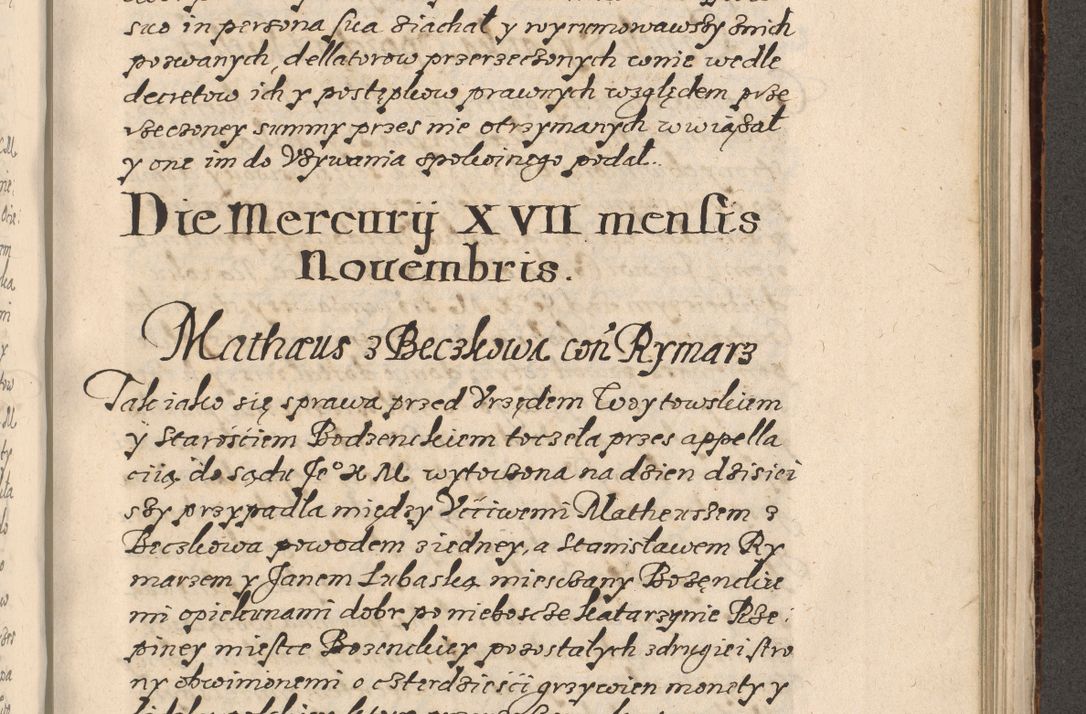 swo in persona sua ziachał y wyrumowawszy znich
pozwanych, dellatorow przerzeczonych wnie wedle
decretow ich y postępkow prawnych względem prze
rzeczoney summy przes nie otrzymanych wwiązał
y one im do Vżywania spokoinego podał.
Die Mercurij XVII mensis
Nouembris.
Mathæus z Beczkowa coń Rymarz
Tak iako się sprawa przed Vrzędem Woytowskiem
y Starośćiem Bodzenckiem toczeła przes appella
ciią do sądu Je° X M. wytoczona na dzien dzisiei
szy przypadła między Vććiwemi Matheuszem z
Beczkowa powodem ziedney, a Stanisławem Ry
marzem y Janem Lubaską mieszczany Bozęnckie
mi opiekunami dobr po nieboszcze Katarzynie Rze
piney mieście Bozenckiey pozostałych z drugiei stro
ny obwimonemi o czterdzieśći grzywien monety y